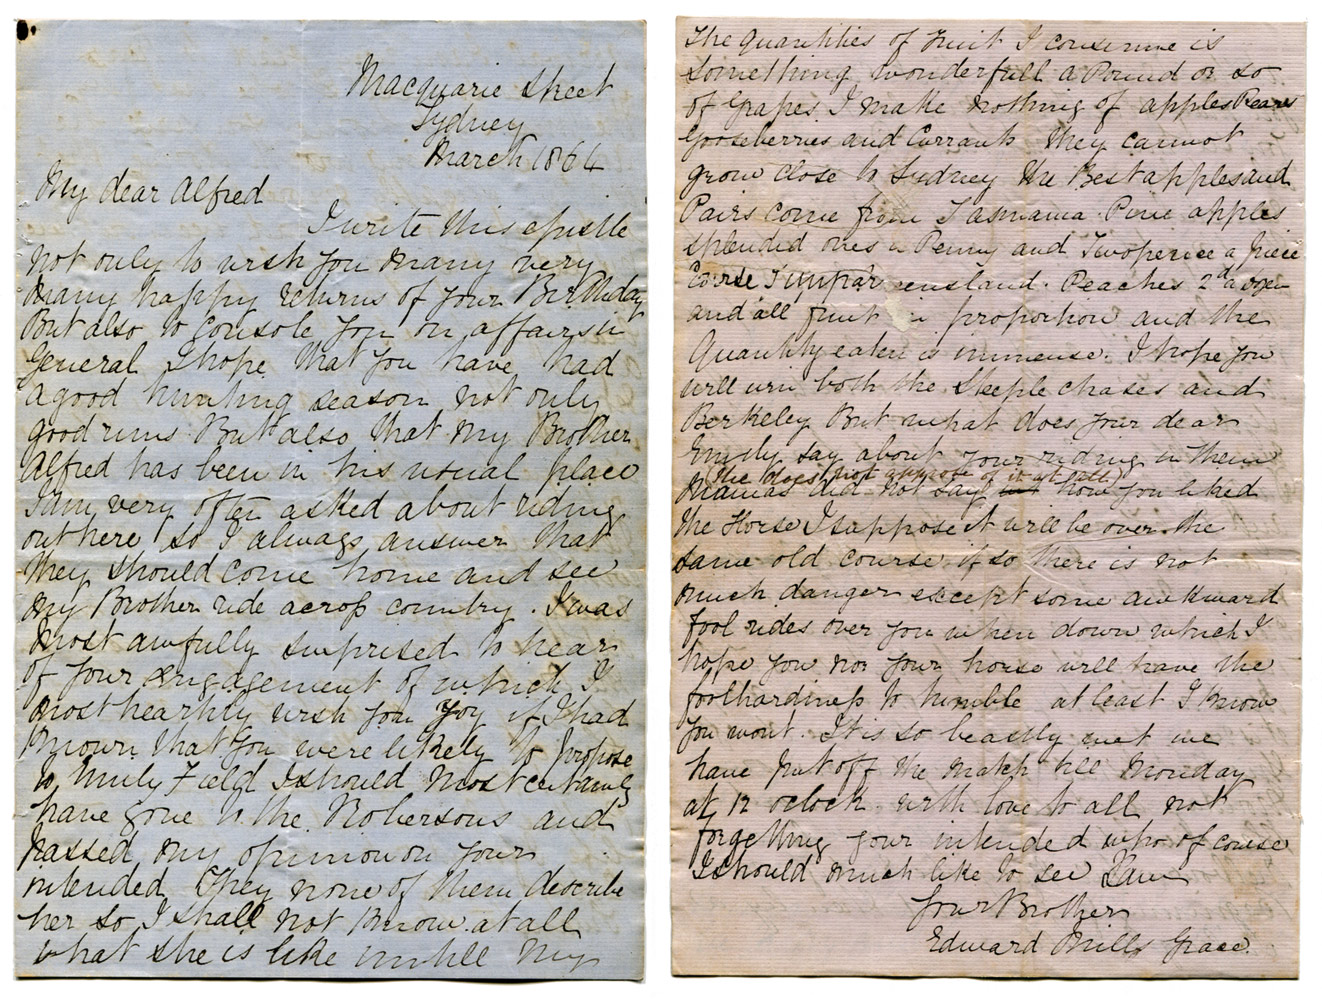 Macquarie Street
Sydney
March 1864
My dear Alfred
I write this epistle
not only to wish you many very
many happy returns of your Birthday
But also to console you on affairs in
General I hope that you have had
a good hunting season not only
good runs But also that my Brother
Alfred has been in his usual place
I am very often asked about riding
out here so I always answer that
they should come home and see
my Brother ride across country. I was
most awfully surprised to hear
of your engagement of which I
most heartily wish you Joy if I had
known that you were likely to propose
to Emily Field I should most certainly
have gone to the Robersons and
passed my opinion on your
intended They none of them describe
her so I shall not know at all
what she is like until My
The quantities of fruit I consume is
something wonderfull a Pound or so
of Grapes I make nothing of apples Pears
Gooseberries and Currants they cannot
grow close to Sydney the Best apples and
Pairs come from Tasmania. Pine apples
splended ones a Penny and Twopence a piece
ensland. Peaches 2d a dozen
and all fruit in proportion and the
Quantity eaten is immense. I hope you
will win both the Steeple chases and
Berkeley But what does your dear
Emily say about your riding in them
(She does not approve of it at all)
Mamas did not say how you liked
the Horse I suppose it will be over the
same old course if so there is not
much danger except some awkward
fool rides over you when down which I
hope you nor your horse will have the
foolhardiness to tumble at least I know
you wont. It is so beastly wet we
have put off the match till Monday
at 12 oclock. with love to all not
forgetting your intended who of course
I should much like to see
Your Brother
Edward Mills Grace.